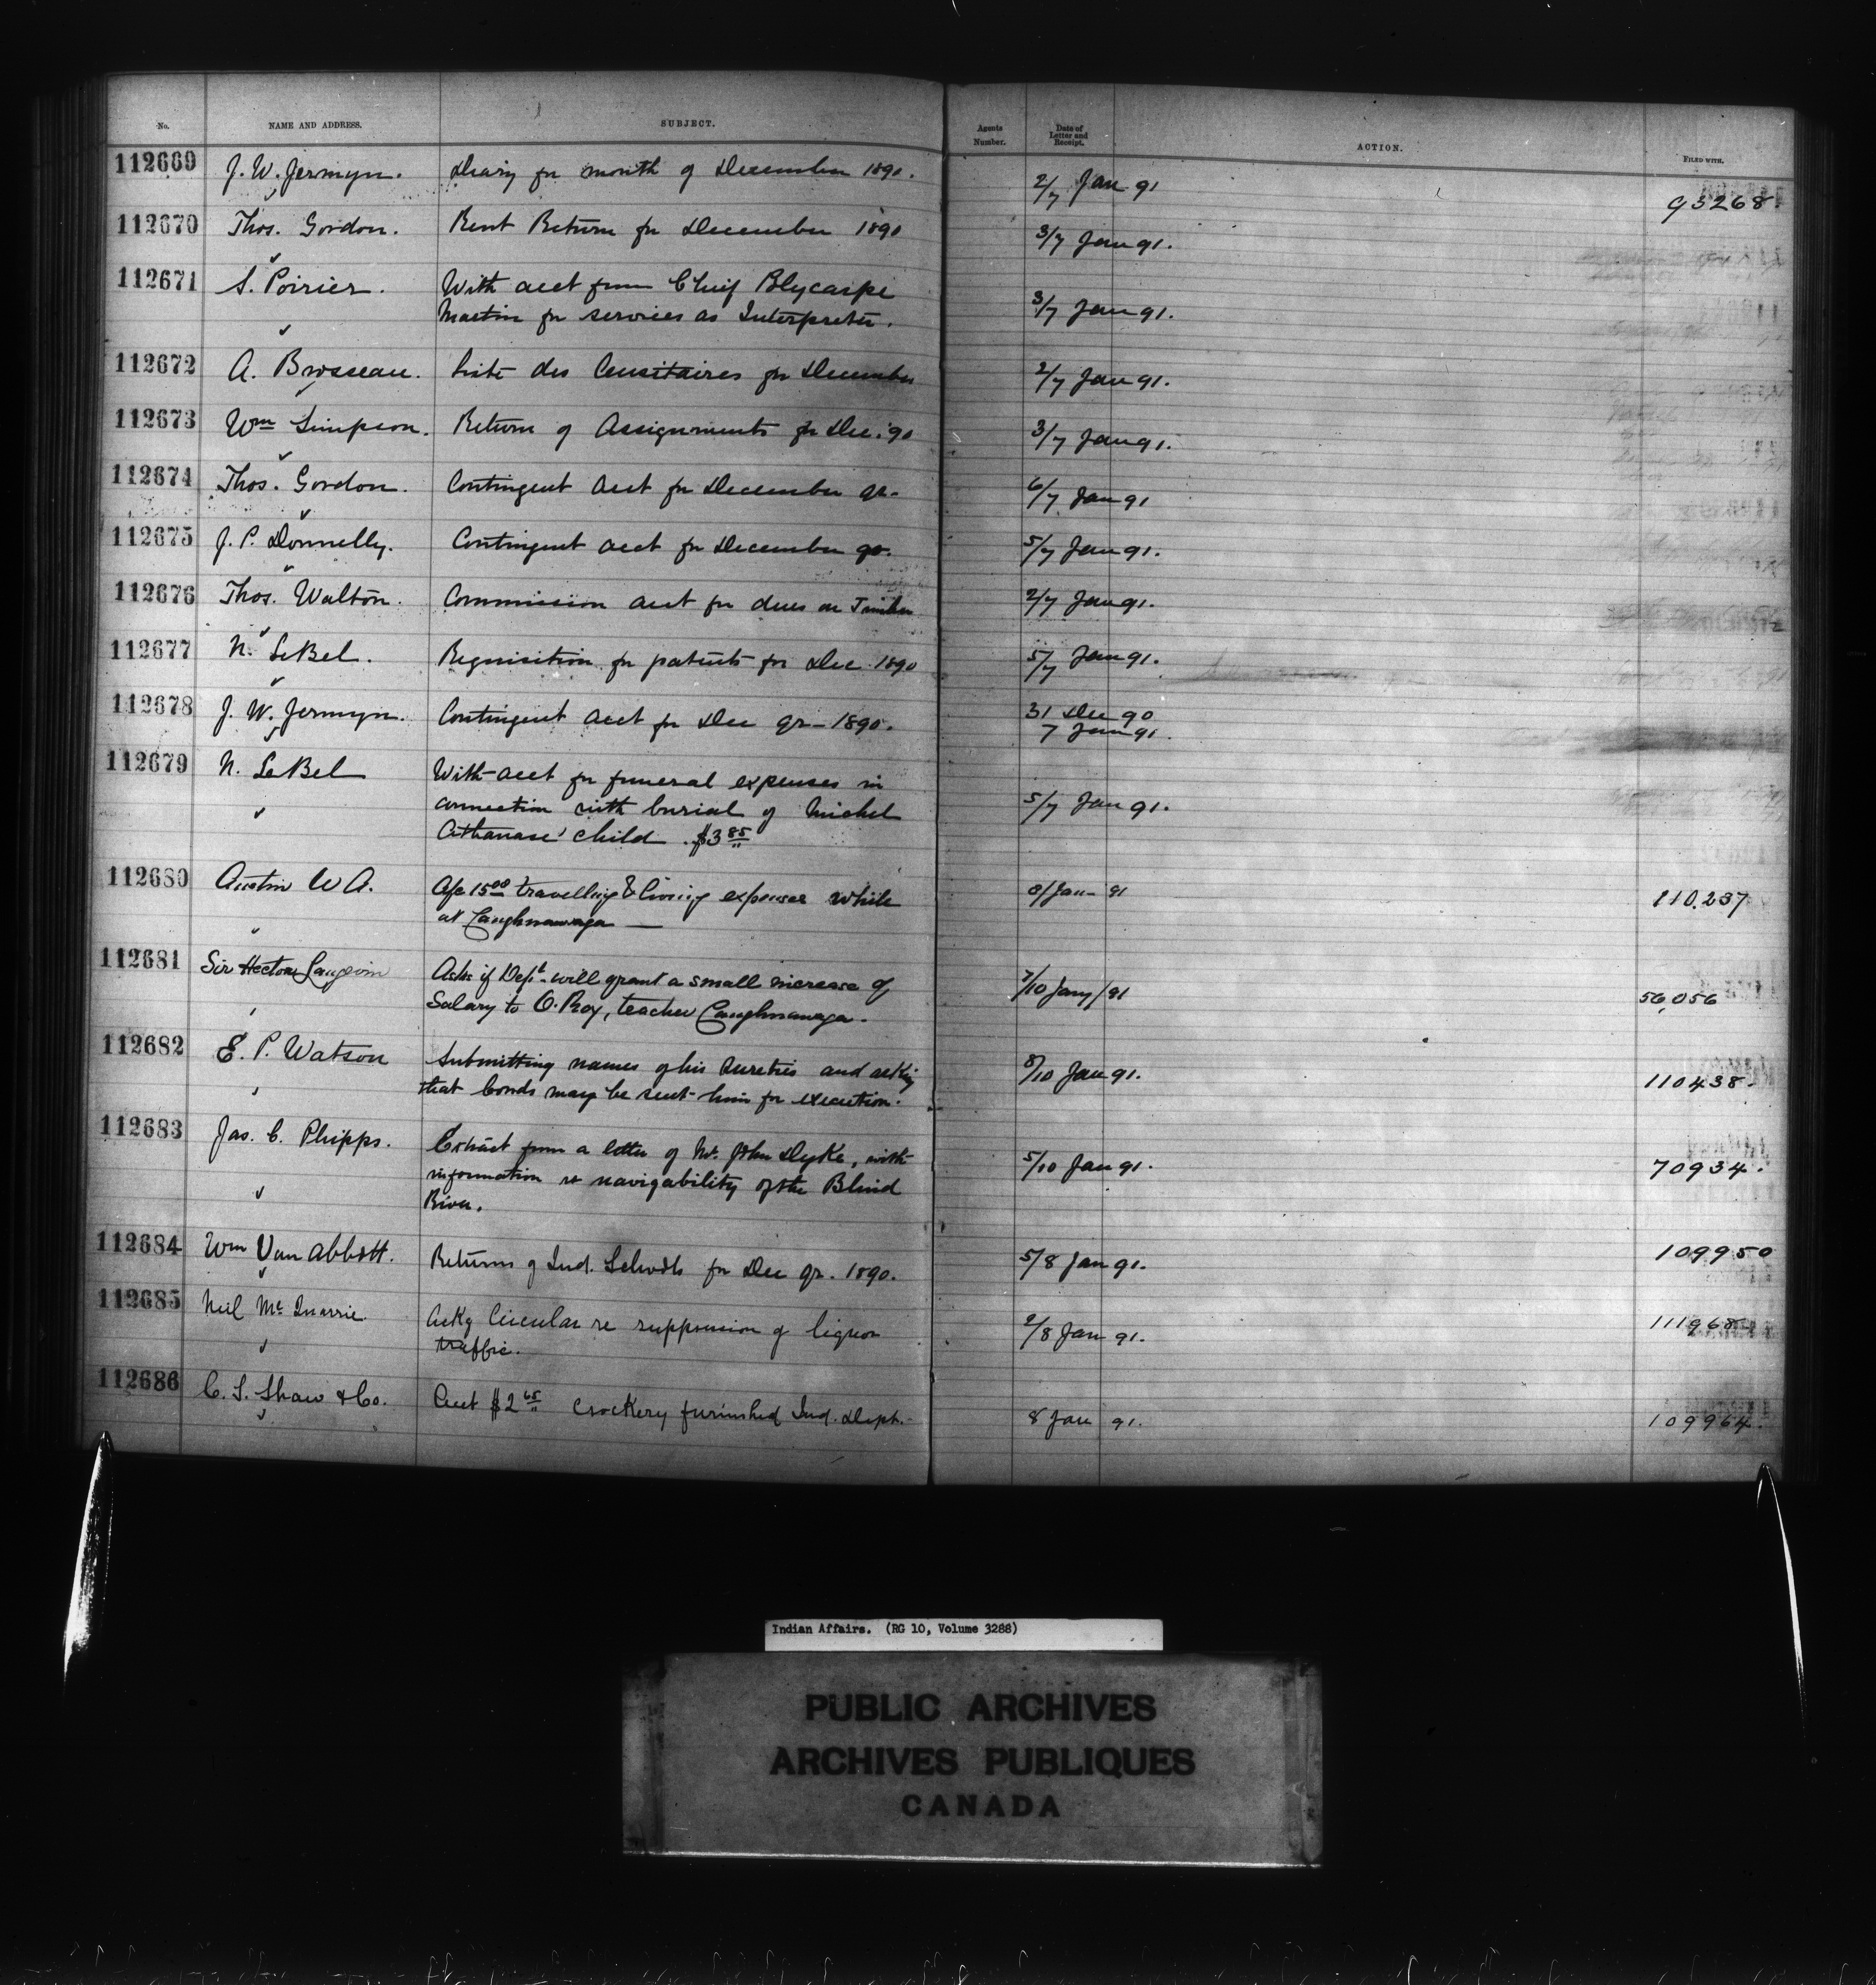 No. NAME AND ADDRESS. SUBJECT. Agents Number. Date of Letter and Receipt. ACTION. FILED WITH.
112669 J. W. Jermyn. Diary for month of December 1890. 2/7 Jan 91 93268
112670 Thos. Gordon. Rent Return for December 1890 3/7 Jan 91.
112671 S. Poirier. With acct from Chief Polycarpe
Martin for services as Interpreter. 3/7 Jan 91.
112672 A. Brosseau. Liste des Censitaires for December 2/7 Jan 91.
112673 Wm Simpson. Return of Assignments for Dec. '90 3/7 Jan 91.
112674 Thos. Gordon. Contingent Acct for December qr. 6/7 Jan 91
112675 J. P. Donnelly. Contingent acct for December qr. 5/7 Jan 91.
112676 Thos. Walton. Commission acct for dues on Timber 2/7 Jan 91.
112677 N. LeBel. Requisition for patents for Dec 1890 5/7 Jan 91.
112678 J. W. Jermyn. Contingent Acct for Dec qr - 1890. 31 Dec 90
7 Jan 91.
112679 N. LeBel With acct for funeral expenses in
connection with burial of Michel
Athanase' child. $3 85 5/7 Jan 91.
112680 Austin W A. A/c 15 00 travelling & living expenses while
at Caughnawaga — 8/Jan - 91 110.237
112681 Sir Hector Langevin Asks if Dept. will grant a small increase of
Salary to O. Roy, teacher Caughnawaga. 7/10 Jany/91 56,056
112682 E. P. Watson Submitting names of his sureties and asking
that bonds may be sent him for execution. 8/10 Jan 91. 110438
112683 Jas. C. Phipps. Extract from a letter of Mr. John Dyke, with
information re navigability of the Blind
River. 5/10 Jan 91. 70934.
112684 Wm Van Abbott. Returns of Ind. Schools for Dec qr. 1890. 5/8 Jan 91. 109950
112685 Neil Mc Quarrie. Ackg Circular re suppression of liquor
traffic. 2/8 Jan 91. 111968
112686 C. S. Shaw & Co. Acct $2 65 Crockery furnished Ind. Dept. 8 Jan 91. 109964.
Indian Affairs. (RG 10, Volume 3288)
PUBLIC ARCHIVES
ARCHIVES PUBLIQUES
CANADA